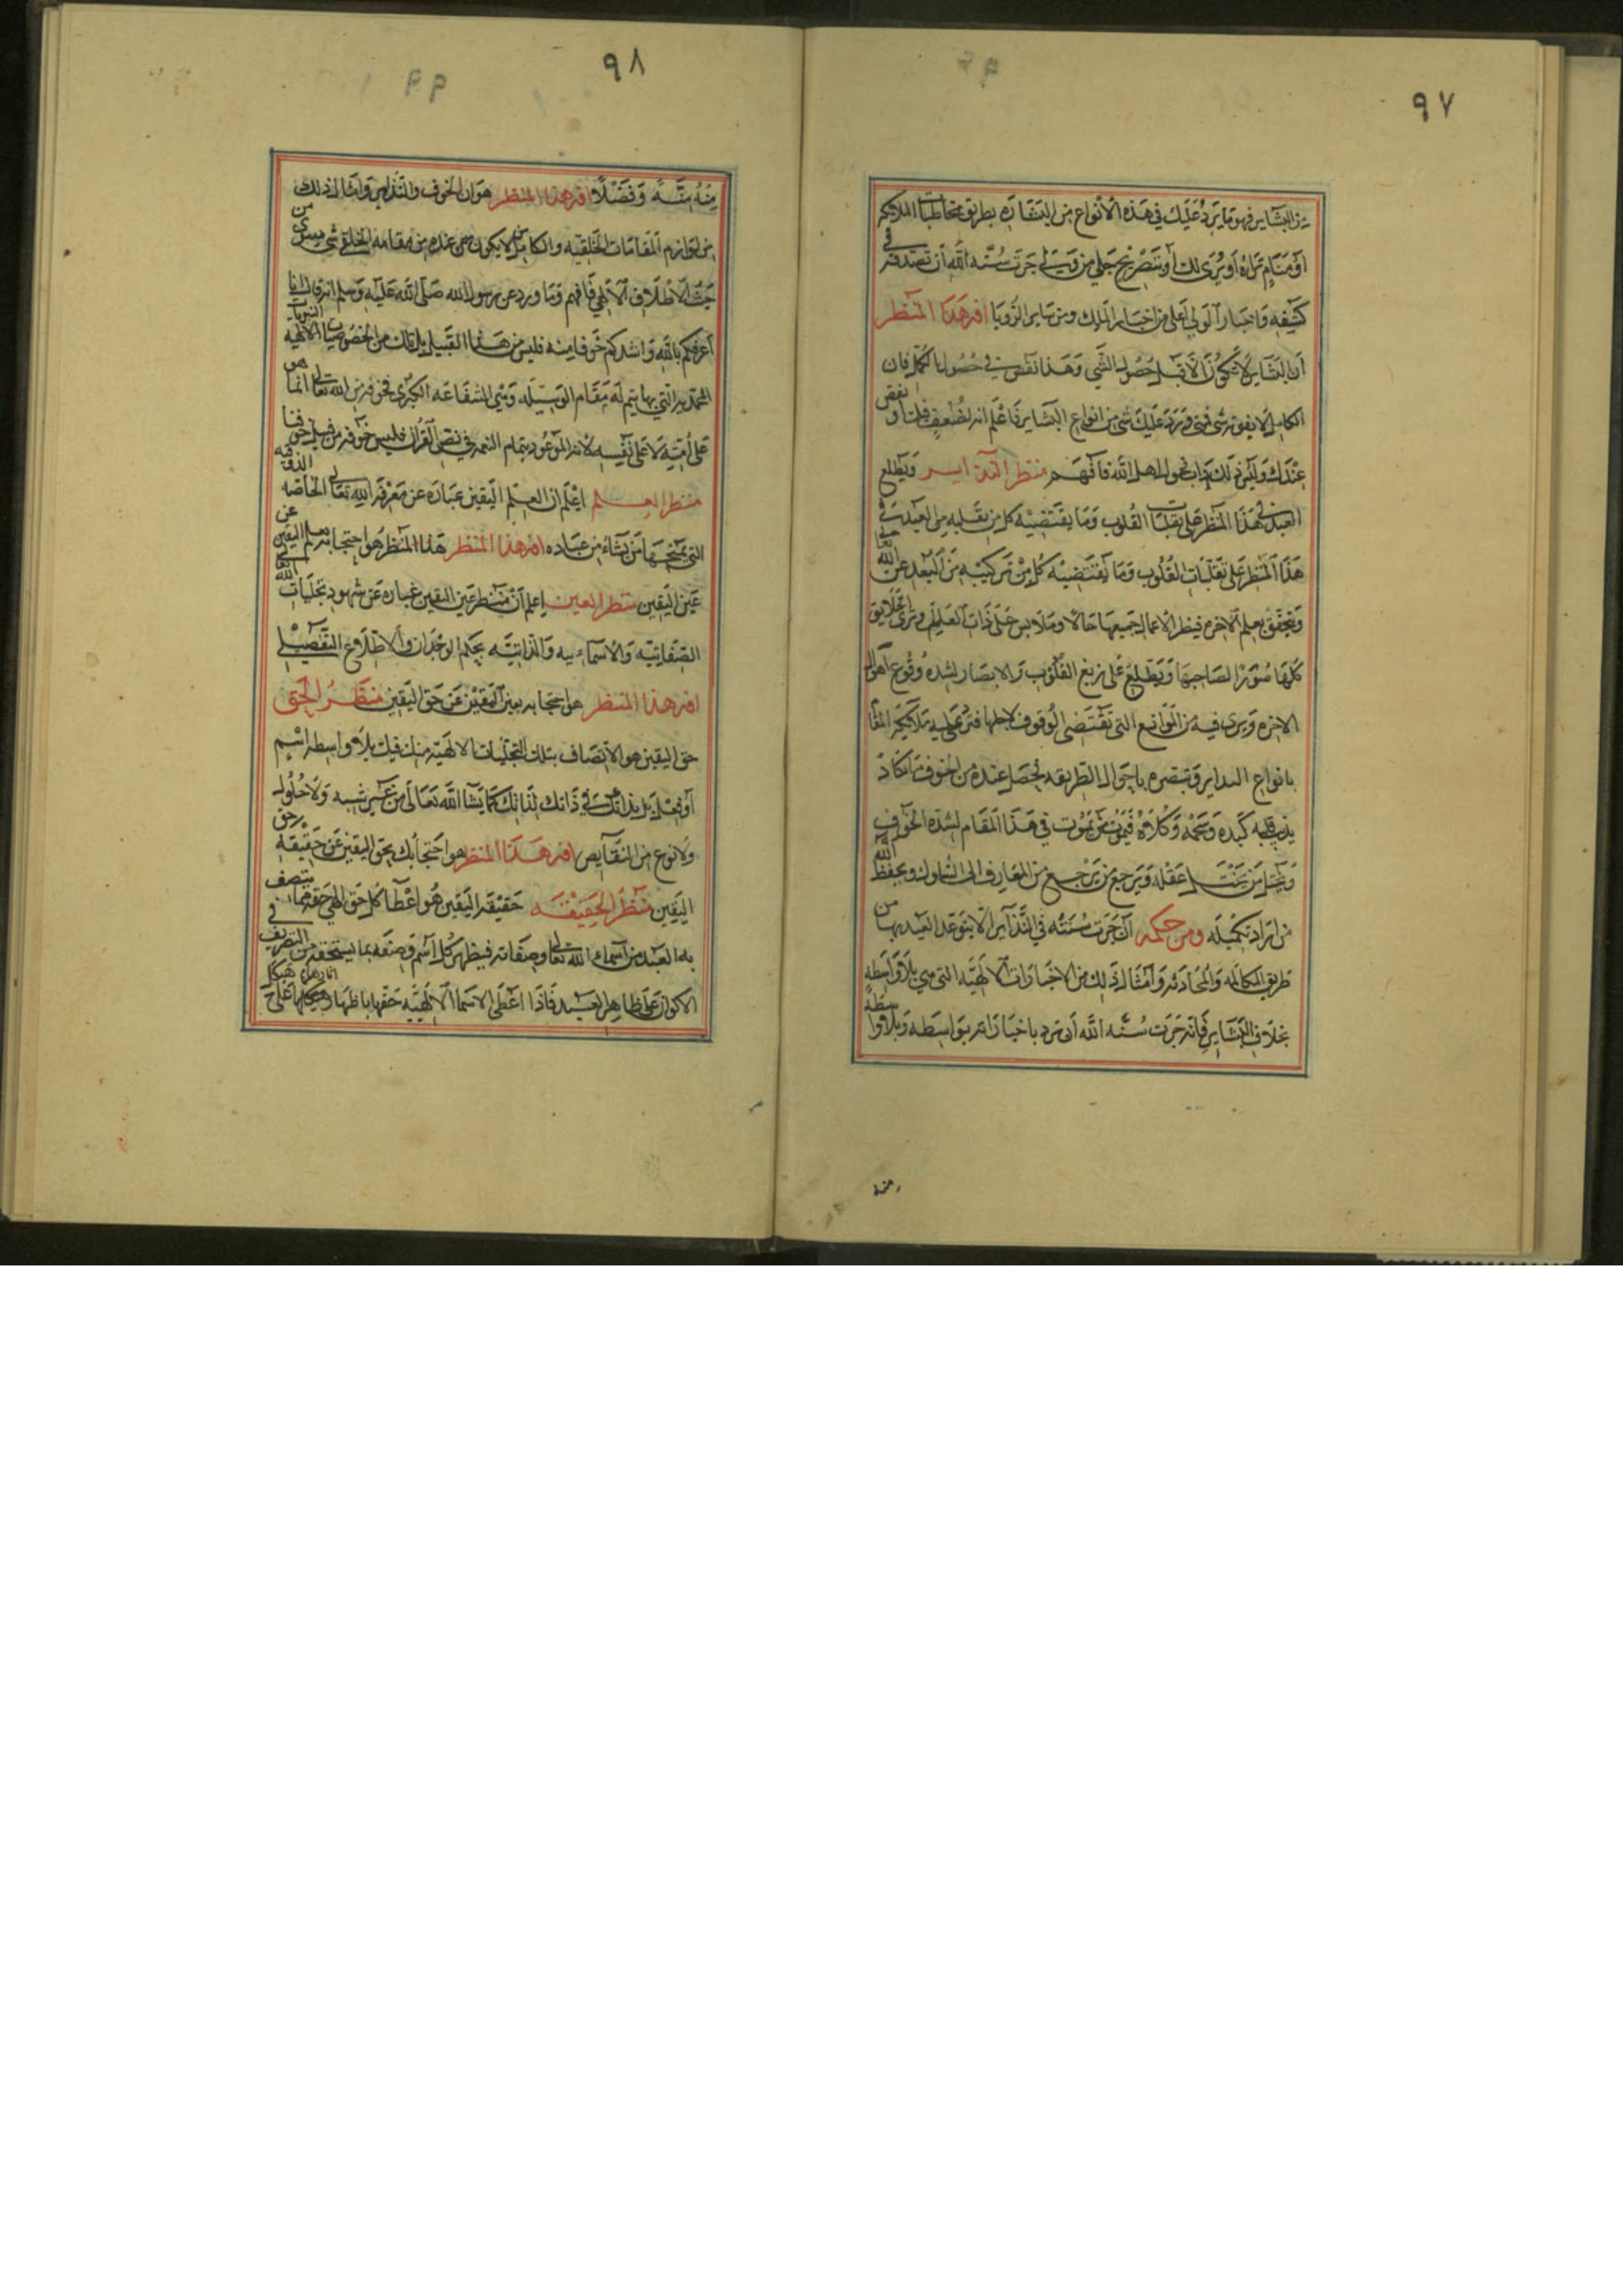 ٩٧
من البشاير فهو ما يرد عليك في هذه الأنواع من البشاره بطريق مخاطبات الملايكه
أو منام تراه أو يرى لك أو تصريح جلي من ولي جرت سنه الله أن تصدقه في
كشفه واخبار الولي اعلى من اخبار الملك ومن ساير الرؤيا افه هذا المنظر
أن البشاير لا تكون الا قبل حصول الشي وهذا نقص في حصول الكمال فان
الكامل لا يفوته شي فمتى ورد عليك شي من انواع البشاير فاعلم انه لضعف فيك او نقص
عندك وليس ذلك داب فحول اهل الله فافهم منظر النذاير ويطلع
العبد في هذا المنظر على تقلبات القلوب وما يقتضيه كل من تقلبه من العبد في
هذا المنظر على تقلبات القلوب وما يقتضيه كل من تركيبه من البعد عن الله تعالى
ويتحقق بعلم الاخره فينظر الأعمال جميعها حالا وملابس على ذات العليم ويرى الخلايق
كلها صورا لصاحبها ويطلع على زيغ القلوب والابصار لشده وقوع اهوال
الاخره ويرى فيه من الموانع التي تقتضى الوقوف لاجلها فتزعجه ملايكه المقام
بانواع النداير وتبصره باحوال الطريقه يحصل عنده من الخوف ما يكاد
يذيب قلبه كبده وشحمه وكلاه فيموت من يموت في هذا المقام لشده الخوف
ويختل من يختل عقله ويرجع من يرجع من المعارف الى السلوك ويحفظ الله
من اراد تكميله ومن حكمه أن جرت سنته في النذاير الا يتوعد العبد بها من
طريق المكالمه والمحادثه وأمثال ذلك من الاخبارات الالهيه التي هي بلا واسطه
بخلاف البشاير فانه جرت سنه الله أن ترد باخباراته بواسطه وبلا واسطه
منه
٩٨
منه منه وفضلا افه هذا المنظر هو ان الخوف والنذاير وامثال ذلك
من لوازم المقامات الخلقيه والكامل لا يكون عنده من مقامه الخلقي شي سوى من
حيث الاطلاق الالهي فافهم وما ورد عن رسول الله صلى الله عليه وسلم انه قال انا
أعرفكم بالله واشدكم خوفا منه فليس من هذا القبيل بل ذلك من الخصوصيات الالهيه
المحمديه التي بها يتم له مقام الوسيله وهي الشفاعه الكبرى فخوفه من الله تعالى انما هو
على أمته لا على نفسه لانه الموعود بتمام النعمه في نص القران فليس خوفه من قبيل خوفنا
منظر العلم اعلم ان العلم اليقين عباره عن معرفه الله تعالى الخاصه الذوقيه
التي يمنحها من يشاء من عباده افه هذا المنظر هذا المنظر هو احتجابه بعلم اليقين عن
عين اليقين منظر العين اعلم أن منظر عين اليقين عباره عن شهود تجليات الله تعالى
الصفاتيه والاسماءييه والذاتيه بحكم الوجدان والاطلاع التفصيلي
افه هذا المنظر هو احتجابه بعين اليقين عن حق اليقين منظر الحق
حق اليقين هو الاتصاف بتلك التجليات الالهيه منك فيك بلا واسطه اسم
أو فعل بل بذاتك في ذاتك لذاتك كما يشا الله تعالى من غير شبه ولا حلول
ولا نوع من النقايص افه هذا المنظر هو احتجابك بحق اليقين عن حقيقه
اليقين منظر الحقيقه حقيقه اليقين هو اعطا كل حق الهي حقه مما يتصف
به العبد من أسماء الله تعالى وصفاته فيظهر كل اسم وصفه بما يستحقه من التصريف في
الاكوان على ظاهر العبد فاذا اعطى الاسما الالهيه حقها باظهار على